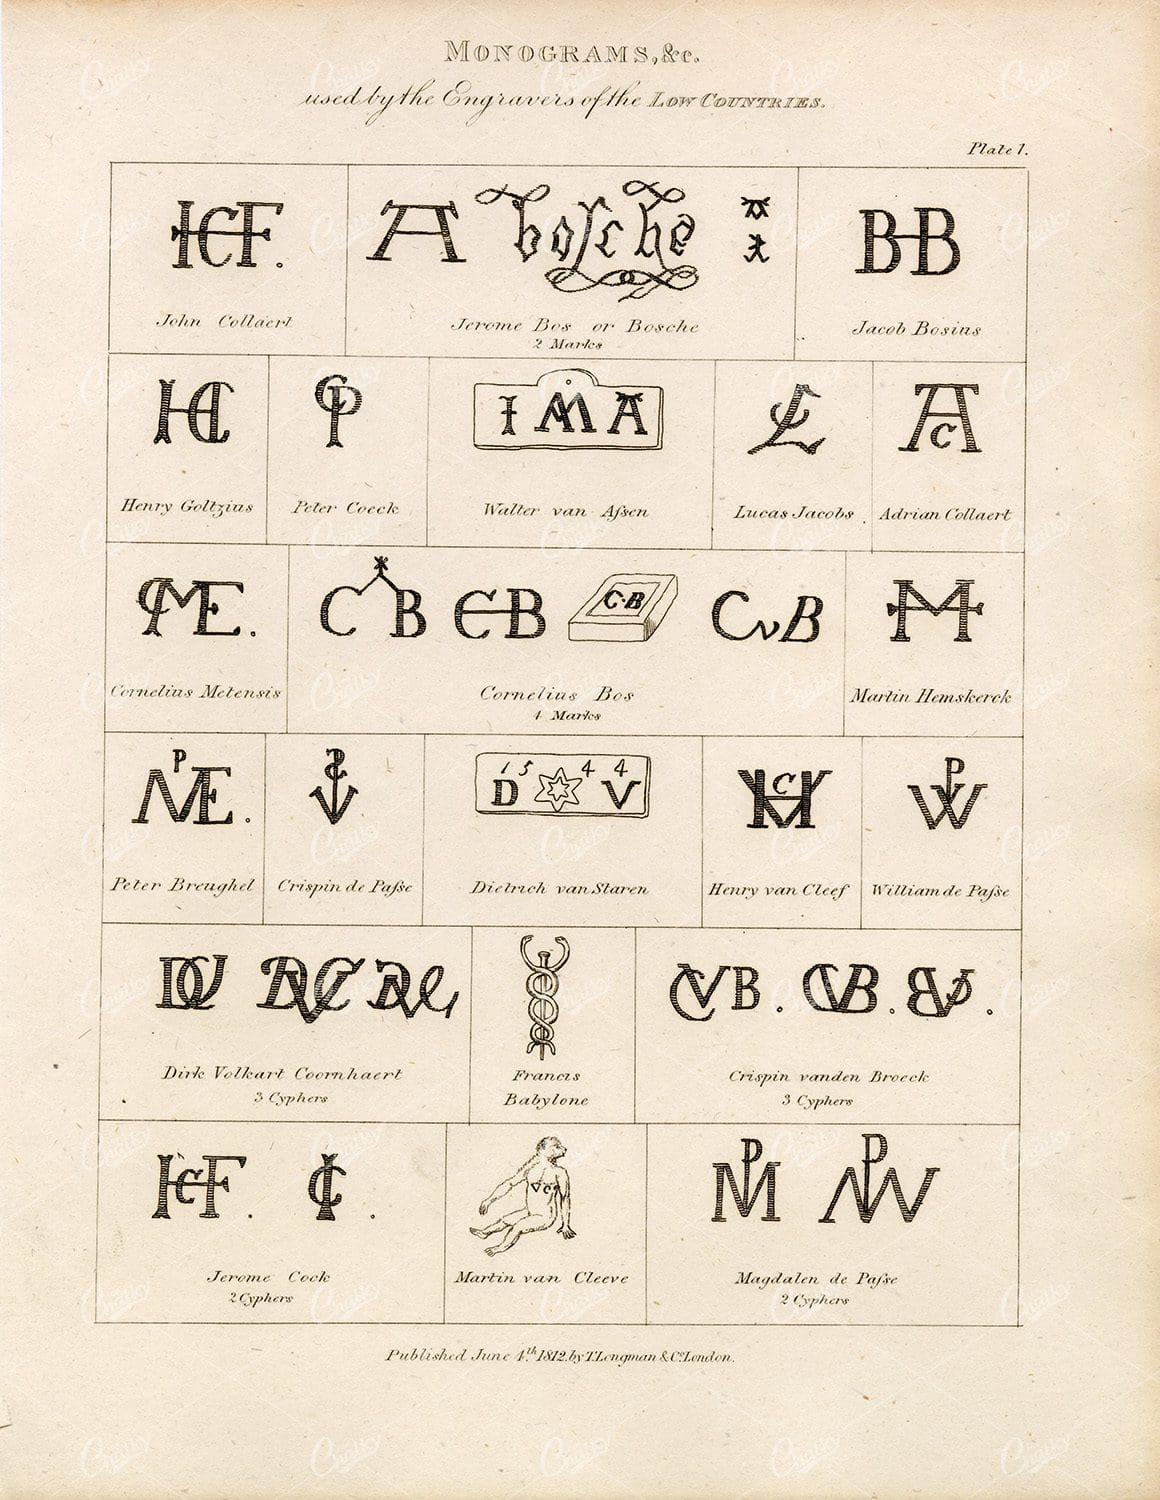 MONOGRAMS, &c.
used by the Engravers of the LOW COUNTRIES.
Plate 1.
HCF.
A bosche
BB
John Collaert
Jerome Bos or Bosche
2 Marks
Jacob Bosius
I M A
Henry Goltzius
Peter Coeck
Walter van Aſsen
Lucas Jacobs
Adrian Collaert
C B
CB
C·B
CvB
Cornelius Metensis
Cornelius Bos
4 Marks
Martin Hemskerck
1 5 4 4
D V
Peter Breughel
Crispin de Paſse
Dietrich van Staren
Henry van Cleef
William de Paſse
Dirk Volkart Coornhaert
3 Cyphers
Francis
Babylone
Crispin vanden Broeck
3 Cyphers
Jerome Cock
2 Cyphers
Martin van Cleeve
Magdalen de Paſse
2 Cyphers
Published June 4th. 1812. by T. Longman & Co. London.